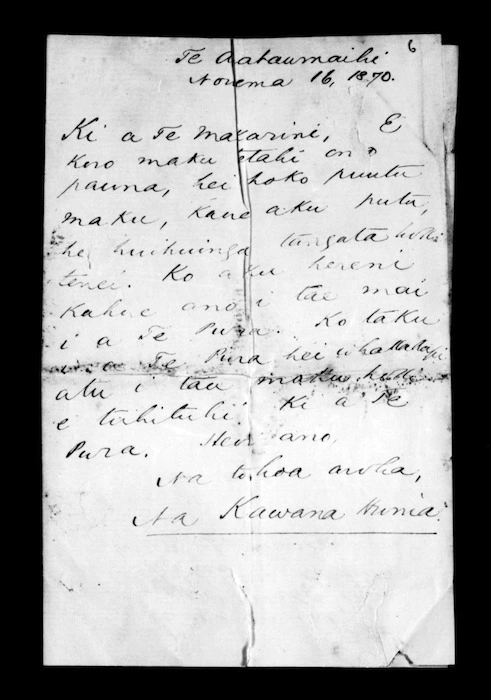 6
Te Aataumaihi
Novema 16, 1870.
Ki a Te Makarini, E
koro maku etahi
pauna, hei hoko puutu
maku, kaue aku putu,
he huihuinga tangata hoki
tenei. Ko aku hereni
kahue ano i tae mai
i a Te Pura. Ko taku
i a Te Pura hei
atu i tau maku hoki
e tuhituhi. Ki a Te
Pura. Heoi ano,
Na to hoa aroha,
Na Kawana Hunia.